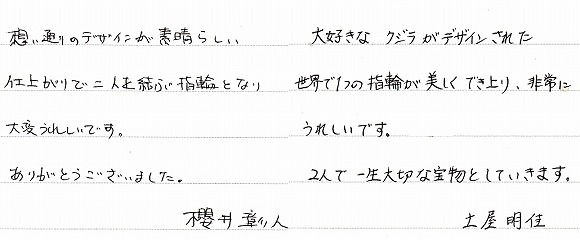 想い通りのデザインが素晴らしい
仕上がりで二人を結ぶ指輪となり
大変うれしいです。
ありがとうございました。
櫻井 人
大好きな クジラがデザインされた
世界で1つの指輪が美しくでき上り、非常に
うれしいです。
2人で一生大切な宝物としていきます。
土屋 明佳